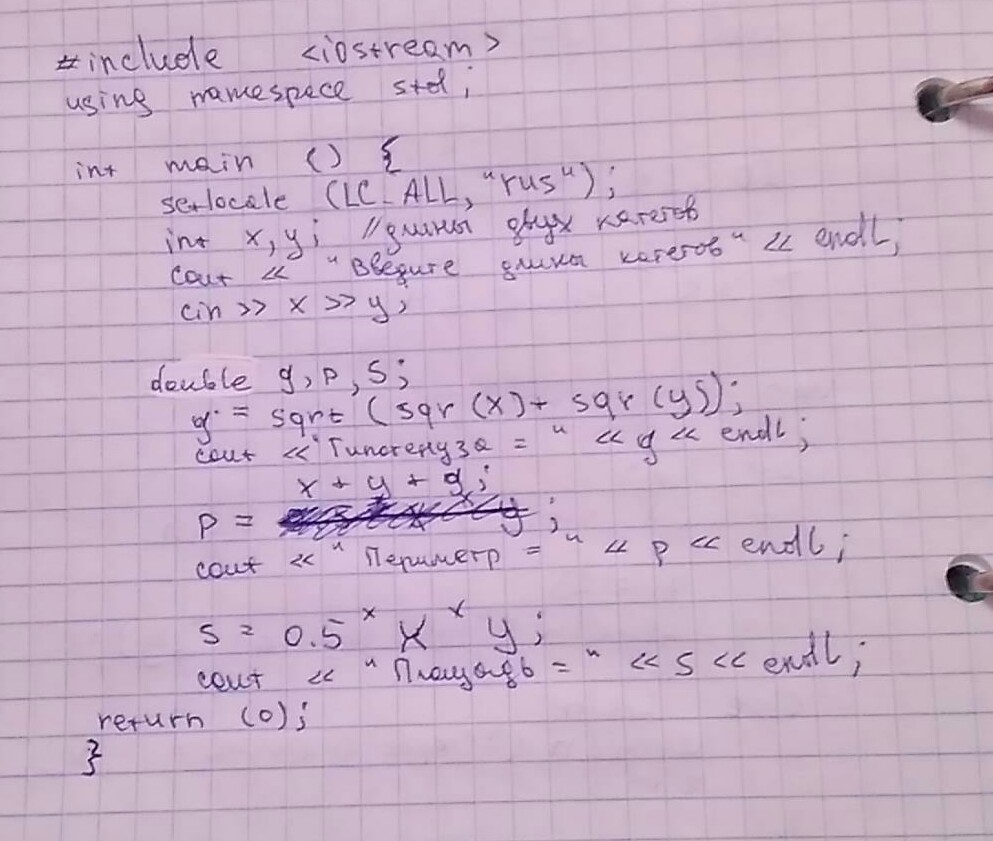 #include <iostream>
using namespace std;
int main () {
setlocale (LC_ALL, "rus");
int x, y; //длины двух катетов
cout << "Введите длины катетов" << endl;
cin >> x >> y;
double g, p, s;
g = sqrt (sqr (x) + sqr (y));
cout << "Гипотенуза = " << g << endl;
x + y + g;
p = ;
cout << "Периметр = " << p << endl;
s = 0.5 * x * y;
cout << "Площадь = " << s << endl;
return (0);
}